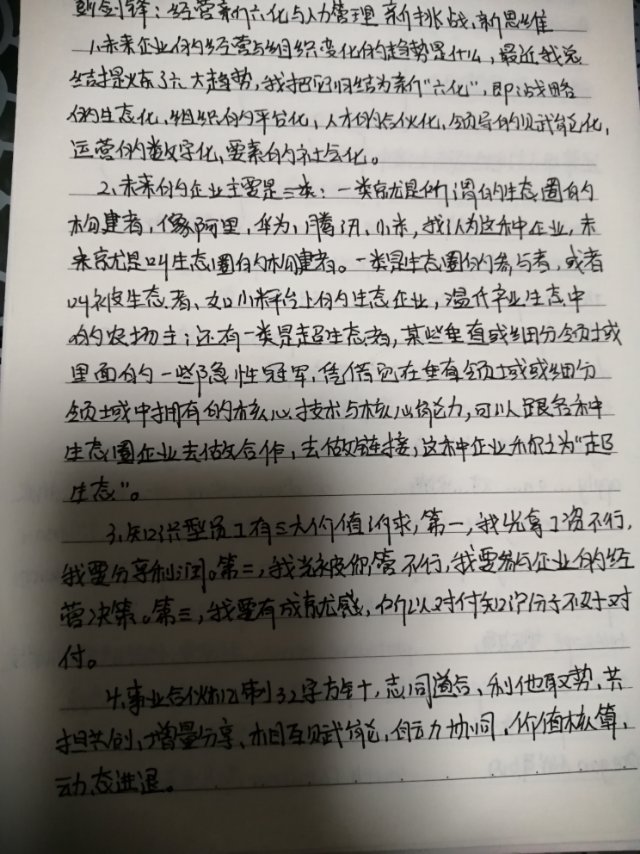 彭剑锋：经营新六化与人力管理新挑战、新思维
1.未来企业的经营与组织变化的趋势是什么，最近我总
结提炼了六大趋势，我把它归结为新“六化”，即：战略
的生态化，组织的平台化，人才的合伙化，领导的赋能化，
运营的数字化，要素的社会化。
2.未来的企业主要是三类：一类就是所谓的生态圈的
构建者，像阿里，华为、腾讯、小米，我认为这种企业，未
来就是叫生态圈的构建者。一类是生态圈的参与者，或者
叫被生态者、如小米平台上的生态企业，温氏产业生态中
的农场主；还有一类是超生态者，某些垂直或细分领域
里面的一些隐性冠军，凭借它在垂直领域或细分
领域中拥有的核心技术与核心能力，可以跟各种
生态圈企业去做合作，去做链接，这种企业称之为“超
生态”。
3.知识型员工有三大价值诉求，第一，我光拿工资不行，
我要分享利润。第二，我光被你管不行，我要参与企业的经
营决策。第三，我要有成就感，所以对付知识分子不好对
付。
4.事业合伙机制32字方针，志同道合、利他取势、共
担共创、增量分享、相互赋能，自动协同，价值核算，
动态进退。